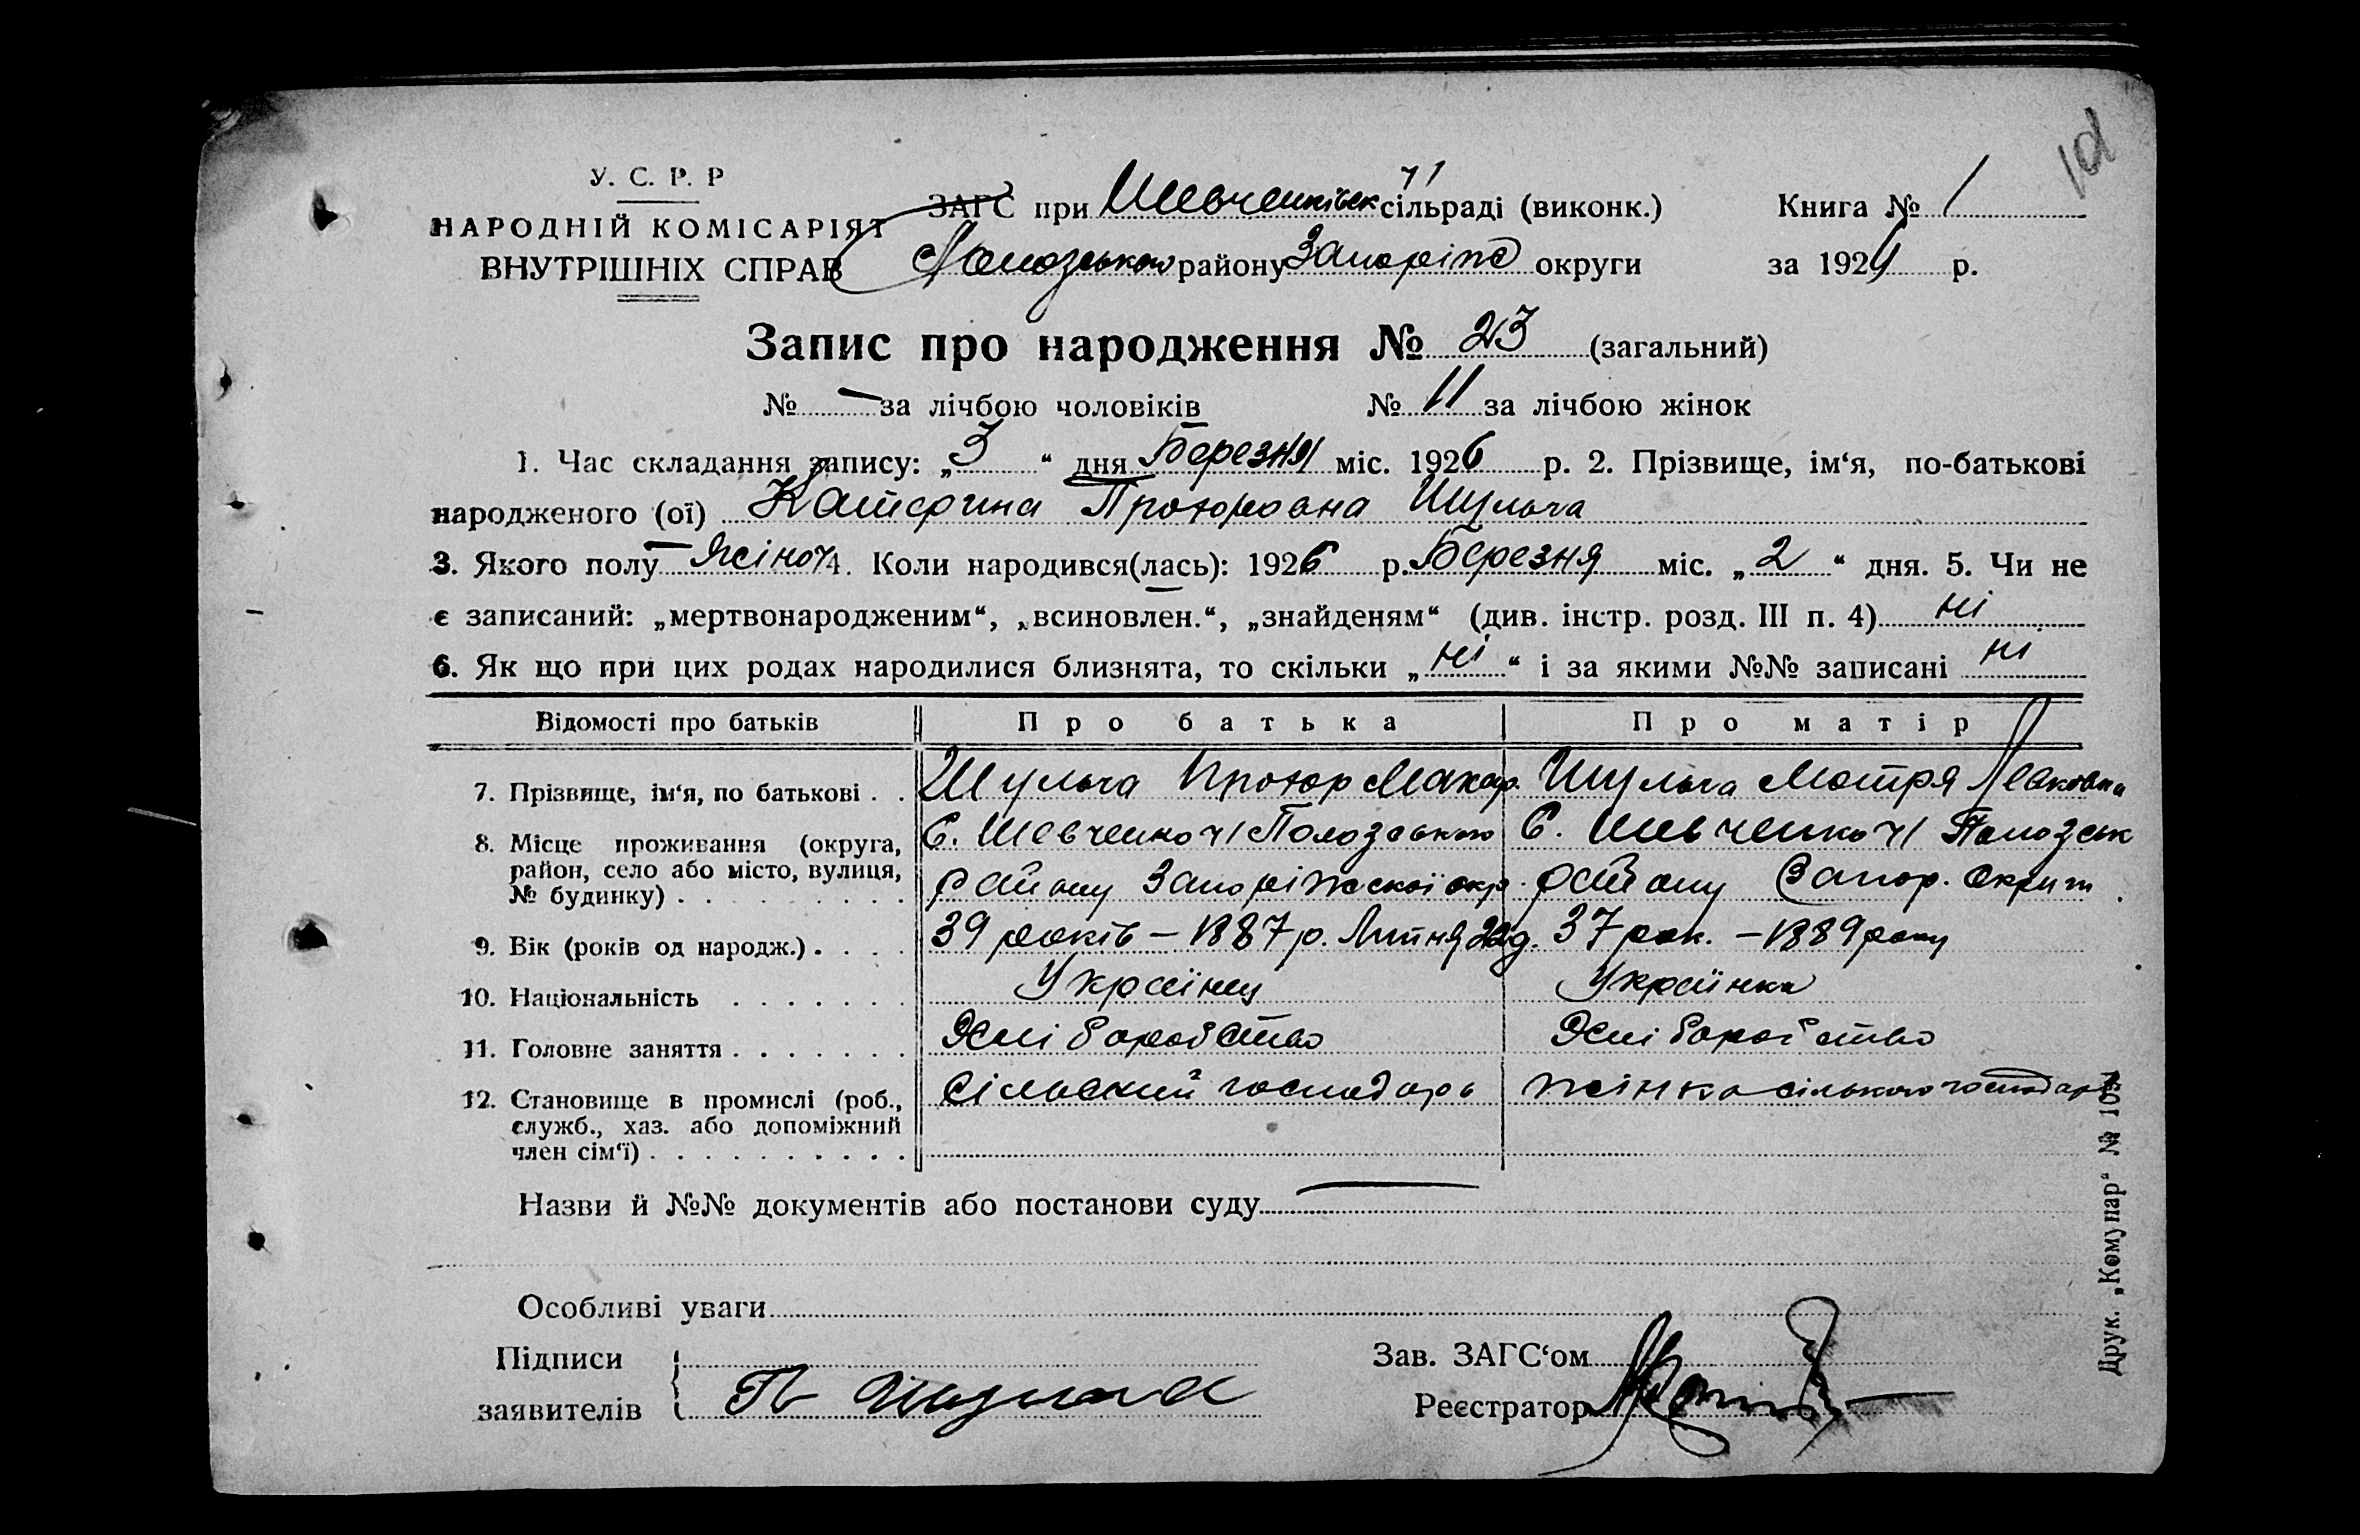 101
У. С. Р. Р
НАРОДНІЙ КОМІСАРІЯТ
ВНУТРІШНІХ СПРАВ
ЗАГС при Шевченківск сільраді (виконк.)
Полозського району Запоріж округи
Книга № 1
за 1926 р.
Запис про народження № 23 (загальний)
№ – за лічбою чоловіків № 11 за лічбою жінок
1. Час складання запису: „3“ дня Березня міс. 1926 р. 2. Прізвище, ім‘я, по-батькові
народженого (ої) Катерина Прохоровна Шульга
3. Якого полу жіноч 4. Коли народився(лась): 1926 р. Березня міс. „2“ дня. 5. Чи не
є записаний: „мертвонародженим“, „всиновлен.“, „знайденям“ (див. інстр. розд. III п. 4) ні
6. Як що при цих родах народилися близнята, то скільки „ні“ і за якими №№ записані ні
Відомості про батьків Про батька Про матір
7. Прізвище, ім‘я, по батькові . . Шульга Прохор Макар. Шульга Мотря Левковна
8. Місце проживання (округа, район, село або місто, вулиця, № будинку) . . . . . . . . .
С. Шевченко 1 Полозського С. Шевченко 1 Полозськ
району Запоріжскої окр. району Запор. Округи
9. Вік (років од народж.) . . . . 39 років – 1887 р. Липня 22 д. 37 рок. – 1889 року
10. Національність . . . . . . . Українец Українка
11. Головне заняття . . . . . . . Хліборобство Хліборобство
12. Становище в промислі (роб., служб., хаз. або допоміжний член сім‘ї) . . . . . . . . . .
сільский господарь жінка сільького господаря
Назви й №№ документів або постанови суду
Особливі уваги
Підписи
заявителів П Шульга
Зав. ЗАГС‘ом
Реєстратор
Друк. „Комунар“ №